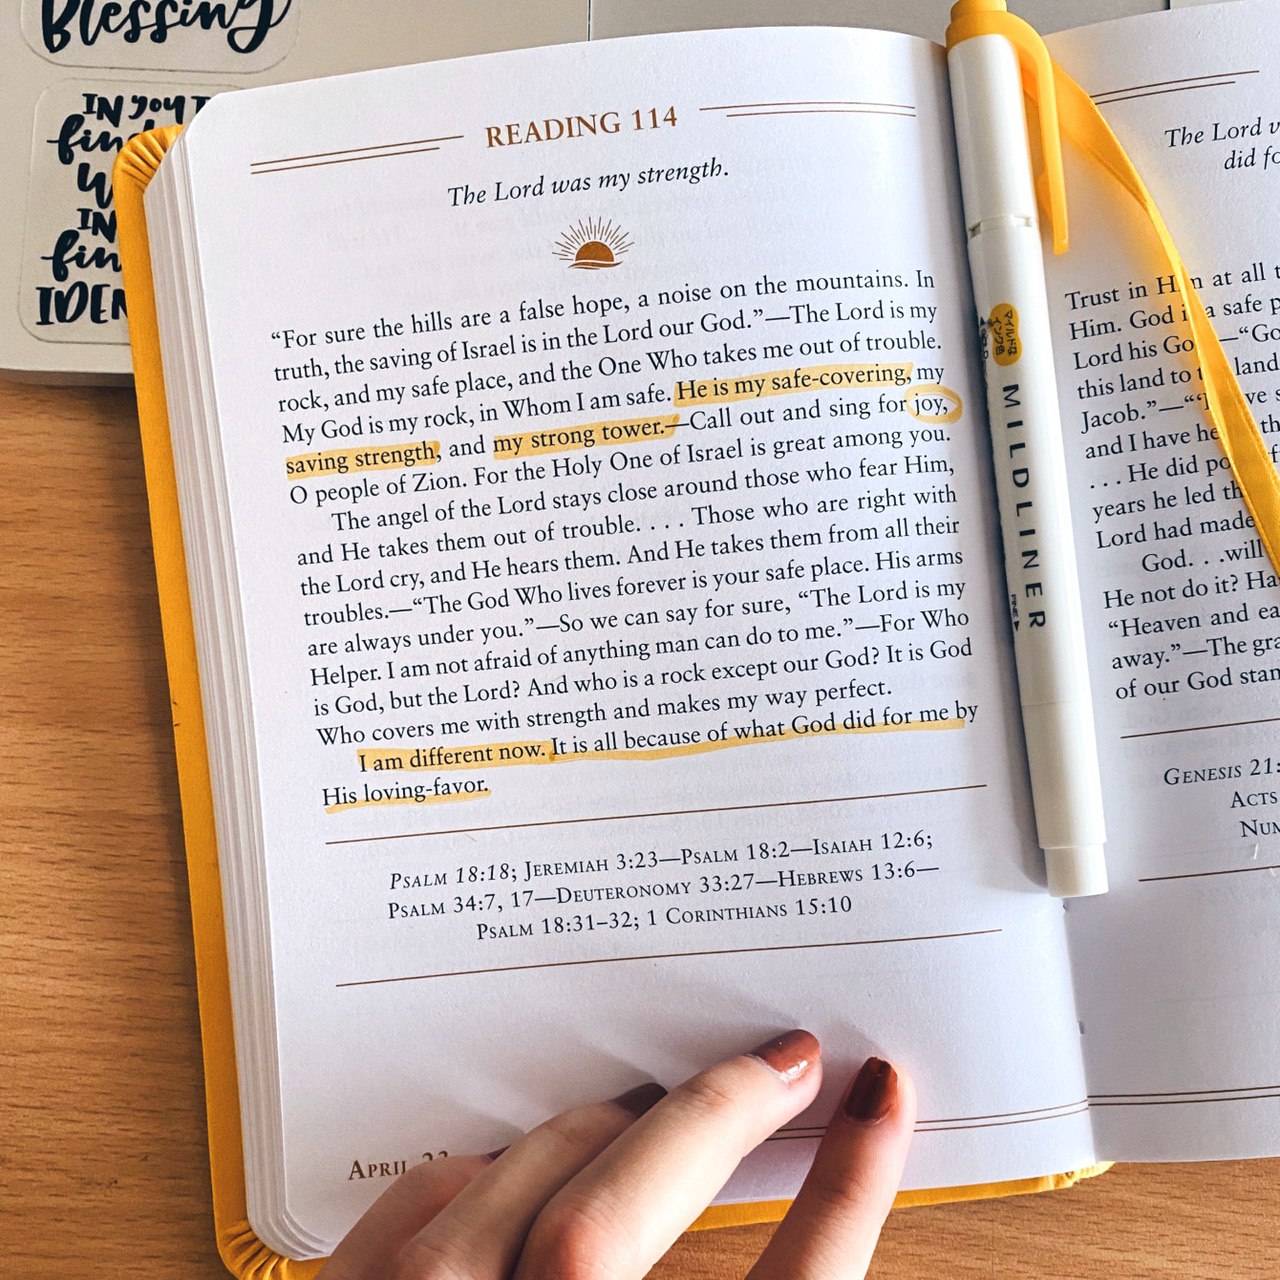 Blessing
IN YOU I
find
IN
READING 114
The Lord was my strength.
“For sure the hills are a false hope, a noise on the mountains. In
truth, the saving of Israel is in the Lord our God.”—The Lord is my
rock, and my safe place, and the One Who takes me out of trouble.
My God is my rock, in Whom I am safe. He is my safe-covering, my
saving strength, and my strong tower.—Call out and sing for joy,
O people of Zion. For the Holy One of Israel is great among you.
The angel of the Lord stays close around those who fear Him,
and He takes them out of trouble. . . . Those who are right with
the Lord cry, and He hears them. And He takes them from all their
troubles.—“The God Who lives forever is your safe place. His arms
are always under you.”—So we can say for sure, “The Lord is my
Helper. I am not afraid of anything man can do to me.”—For Who
is God, but the Lord? And who is a rock except our God? It is God
Who covers me with strength and makes my way perfect.
I am different now. It is all because of what God did for me by
His loving-favor.
Psalm 18:18; Jeremiah 3:23—Psalm 18:2—Isaiah 12:6;
Psalm 34:7, 17—Deuteronomy 33:27—Hebrews 13:6—
Psalm 18:31–32; 1 Corinthians 15:10
April
マイルドな
MILDLINER
The Lord
did
Trust in at all
Him. God a safe
Lord his —“Go
this land to land
Jacob.”—
and I have
. . . He did
years he led
Lord had made
God. . .will
He not do it?
“Heaven and
away.”—The
of our God
Genesis 21:
Acts